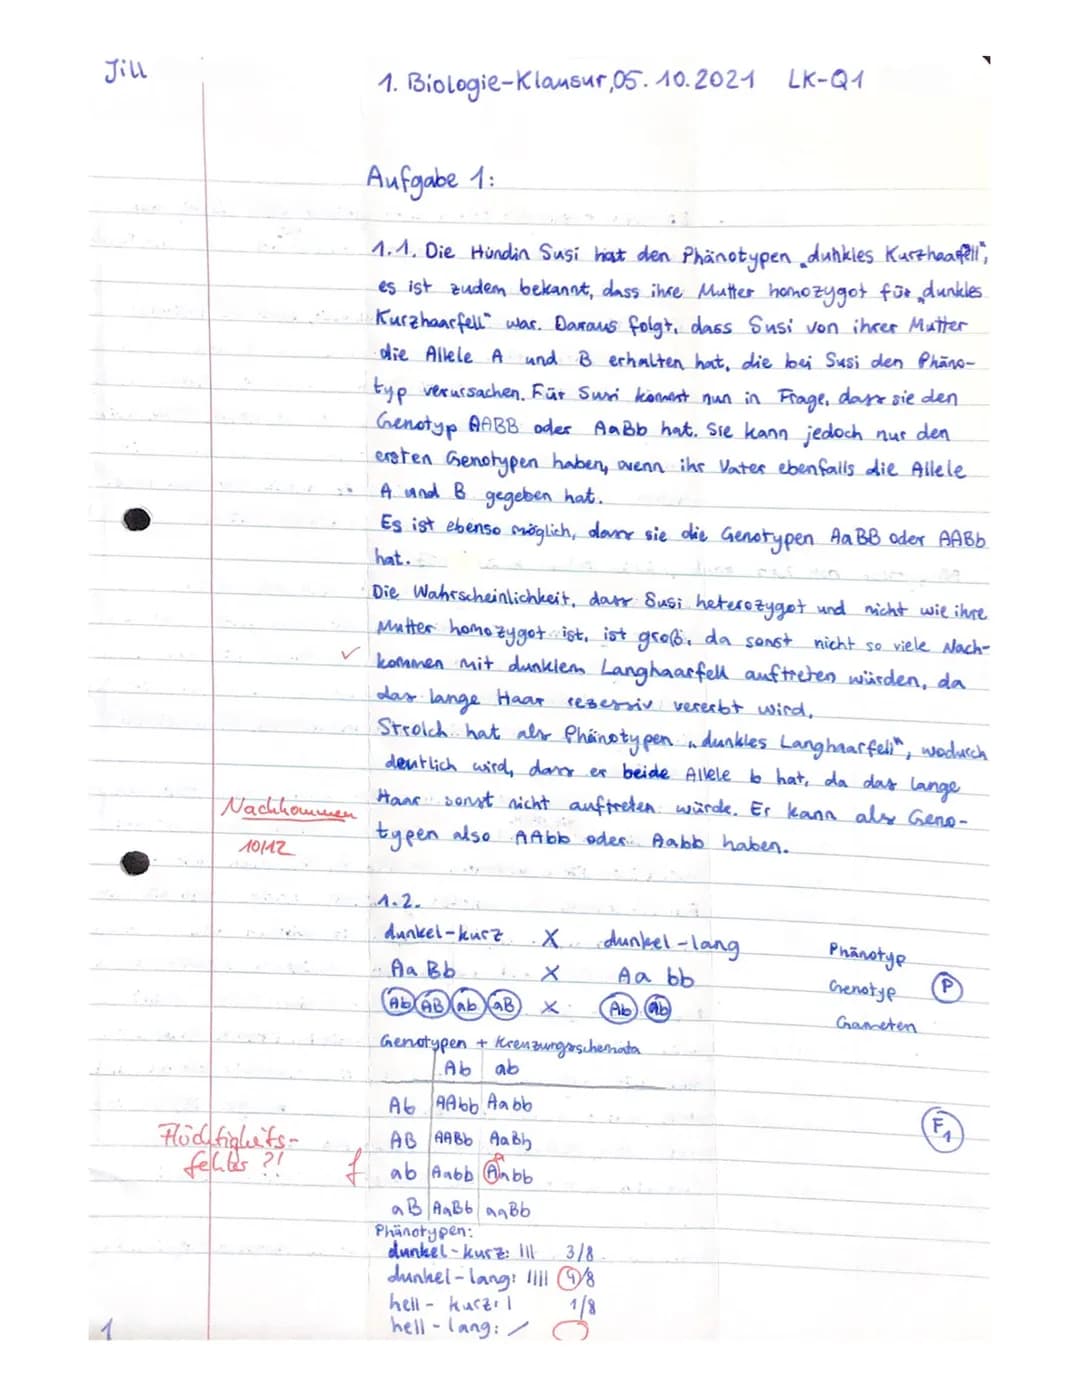 Jill
1. Biologie-Klausur, 05.10.2021 LK-Q1
Aufgabe 1:
1.1. Die Hündin Susi hat den Phänotypen „dunkles Kurzhaarfell",
es ist zudem bekannt, dass ihre Mutter homozygot für „dunkles
Kurzhaarfell" war. Daraus folgt, dass Susi von ihrer Mutter
die Allele A und B erhalten hat, die bei Susi den Phäno-
typ verursachen. Für Susi kommt nun in Frage, dass sie den
Genotyp AABB oder AaBb hat. Sie kann jedoch nur den
ersten Genotypen haben, wenn ihr Vater ebenfalls die Allele
A und B gegeben hat.
Es ist ebenso möglich, dass sie die Genotypen AaBB oder AABb
hat.
Die Wahrscheinlichkeit, dass Susi heterozygot und nicht wie ihre
Mutter homozygot ist, ist groß, da sonst nicht so viele Nach-
✓ kommen mit dunklem Langhaarfell auftreten würden, da
das lange Haar rezessiv vererbt wird.
Strolch hat als Phänotypen „dunkles Langhaarfell", wodurch
deutlich wird, dass er beide Allele b hat, da das lange
Nachkommen Haar sonst nicht auftreten würde. Er kann als Geno-
10/12 typen also AAbb oder Aabb haben.
1.2.
dunkel-kurz X dunkel-lang Phänotyp
Aa Bb X Aa bb Genotyp P
Ab AB ab aB X Ab ab Gameten
Genotypen + Kreuzungsschemata
Ab ab
Ab AAbb Aabb F1
Flüchtigkeits- AB AABb AaBb
fehler ?! f ab Aabb Aabb a
aB AaBb aaBb
Phänotypen:
dunkel-kurz: III 3/8
dunkel-lang: IIII 4/8
hell-kurz: I 1/8
hell-lang: /
1